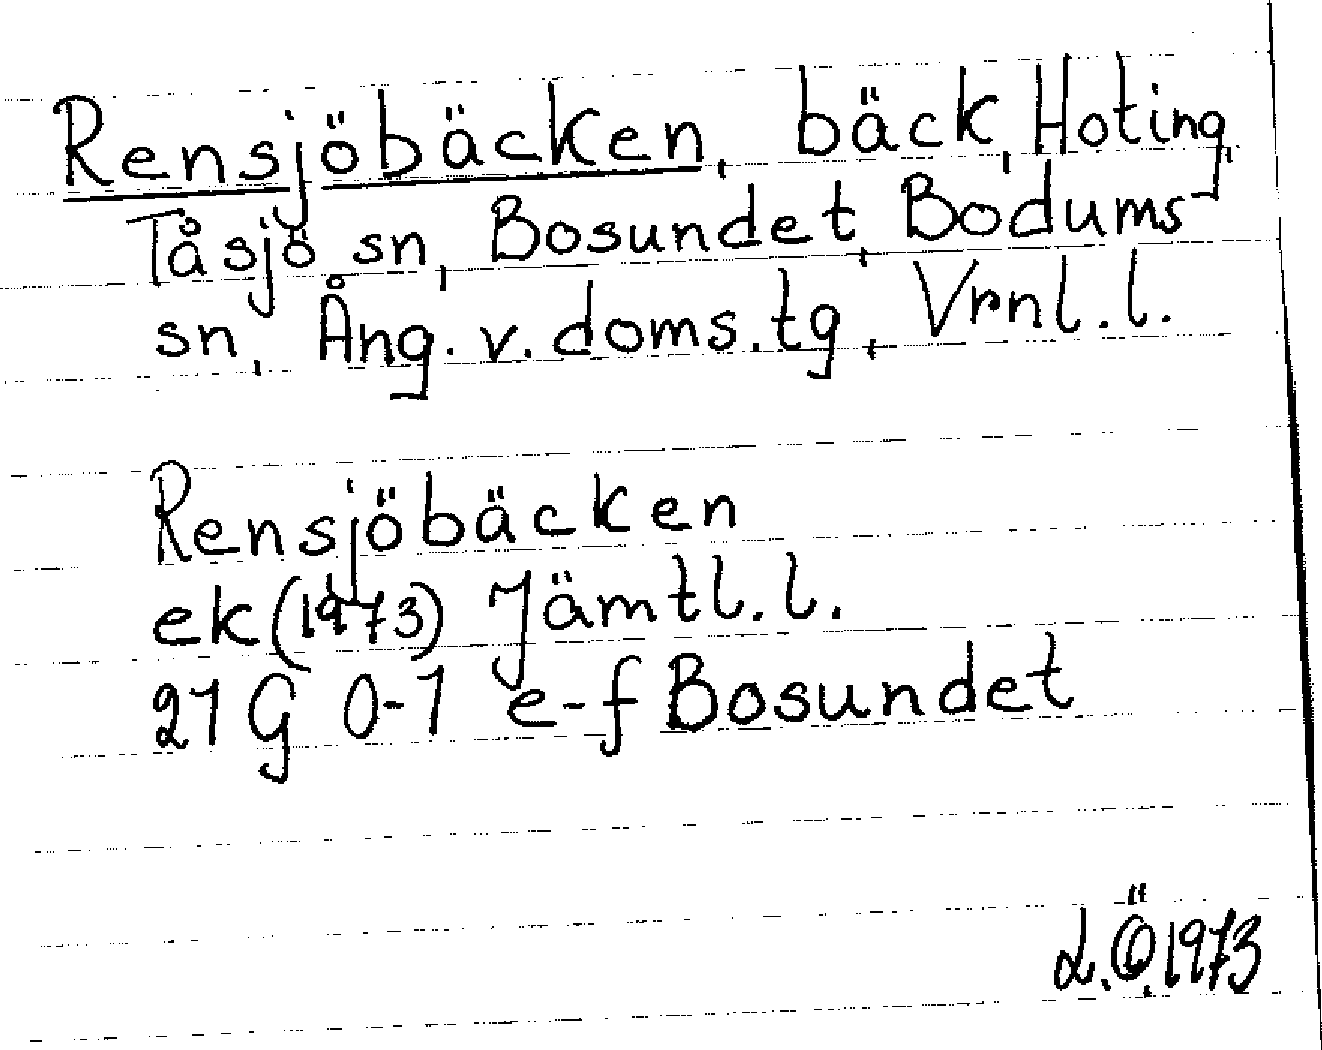 Rensjöbäcken, bäck, Hoting,
Tåsjö sn, Bosundet, Bodums
sn, Ång. v. doms.tg, Vrnl. l.
Rensjöbäcken
ek (1973) Jämtl. l.
21 G 0-1 e-f Bosundet
L.Ö. 1973